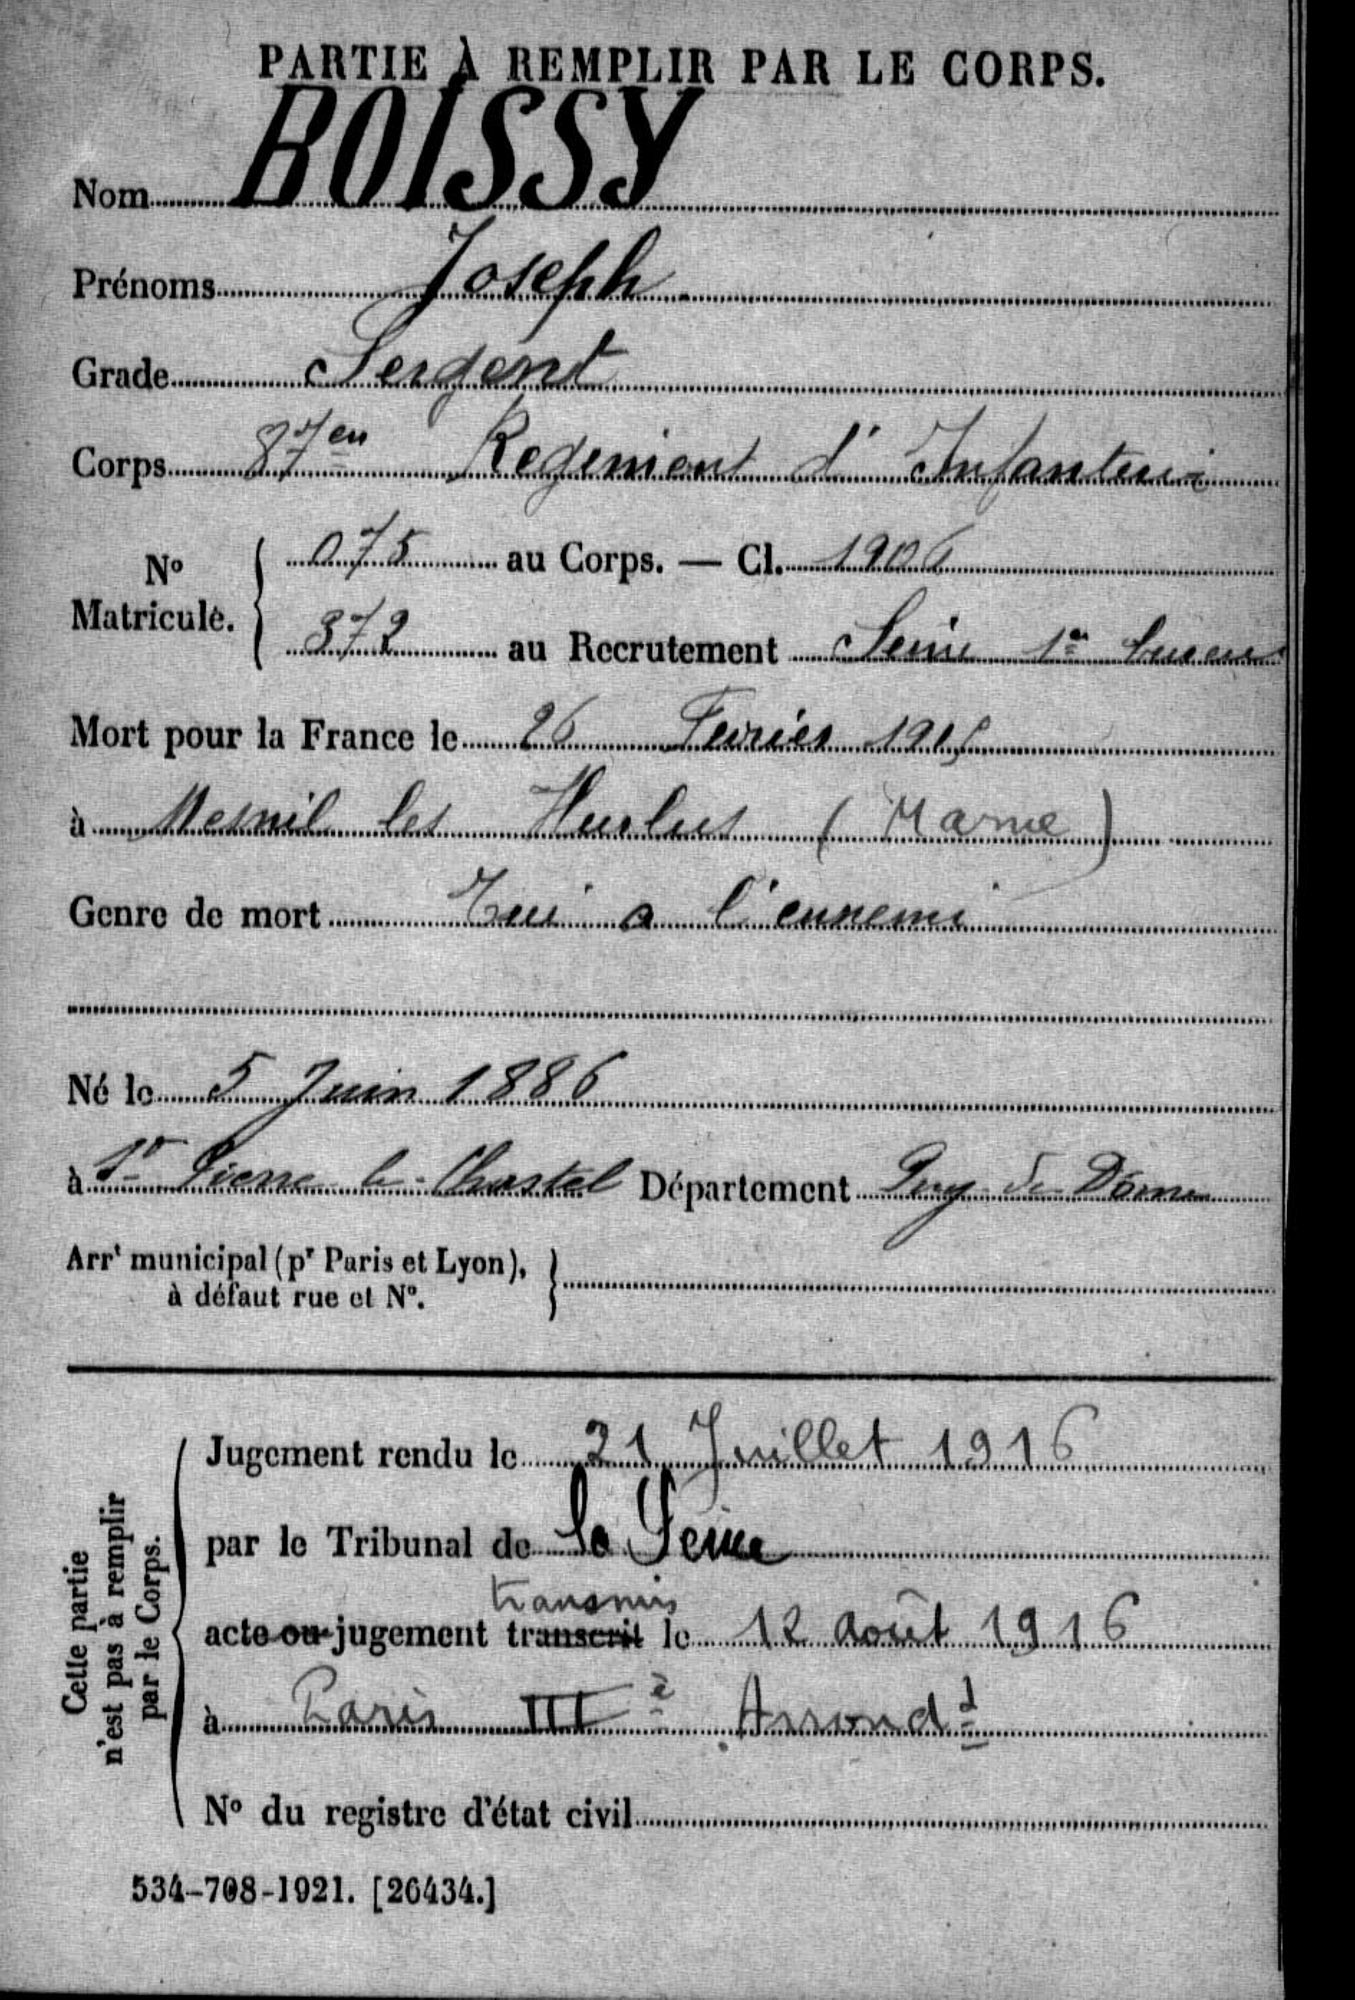 PARTIE À REMPLIR PAR LE CORPS.
Nom BOISSY
Prénoms Joseph
Grade Sergent
Corps 87en Regiment d'Infanterie
No Matricule. { 075 au Corps. — Cl. 1906
372 au Recrutement Seine 1er bureau
Mort pour la France le 26 Fevrier 1915
à Mesnil les Hurlus (Marne)
Genre de mort Tué a l'ennemi
Né le 5 Juin 1886
à St Pierre le-Chastel Département Puy de Dôme
Arrt municipal (pr Paris et Lyon), à défaut rue et No. }
Cette partie n'est pas à remplir par le Corps.
Jugement rendu le 21 Juillet 1916
par le Tribunal de la Seine
transmis
acte ou jugement transcrit le 12 août 1916
à Paris IIIe Arrondt
No du registre d'état civil
534-708-1921. [26434.]